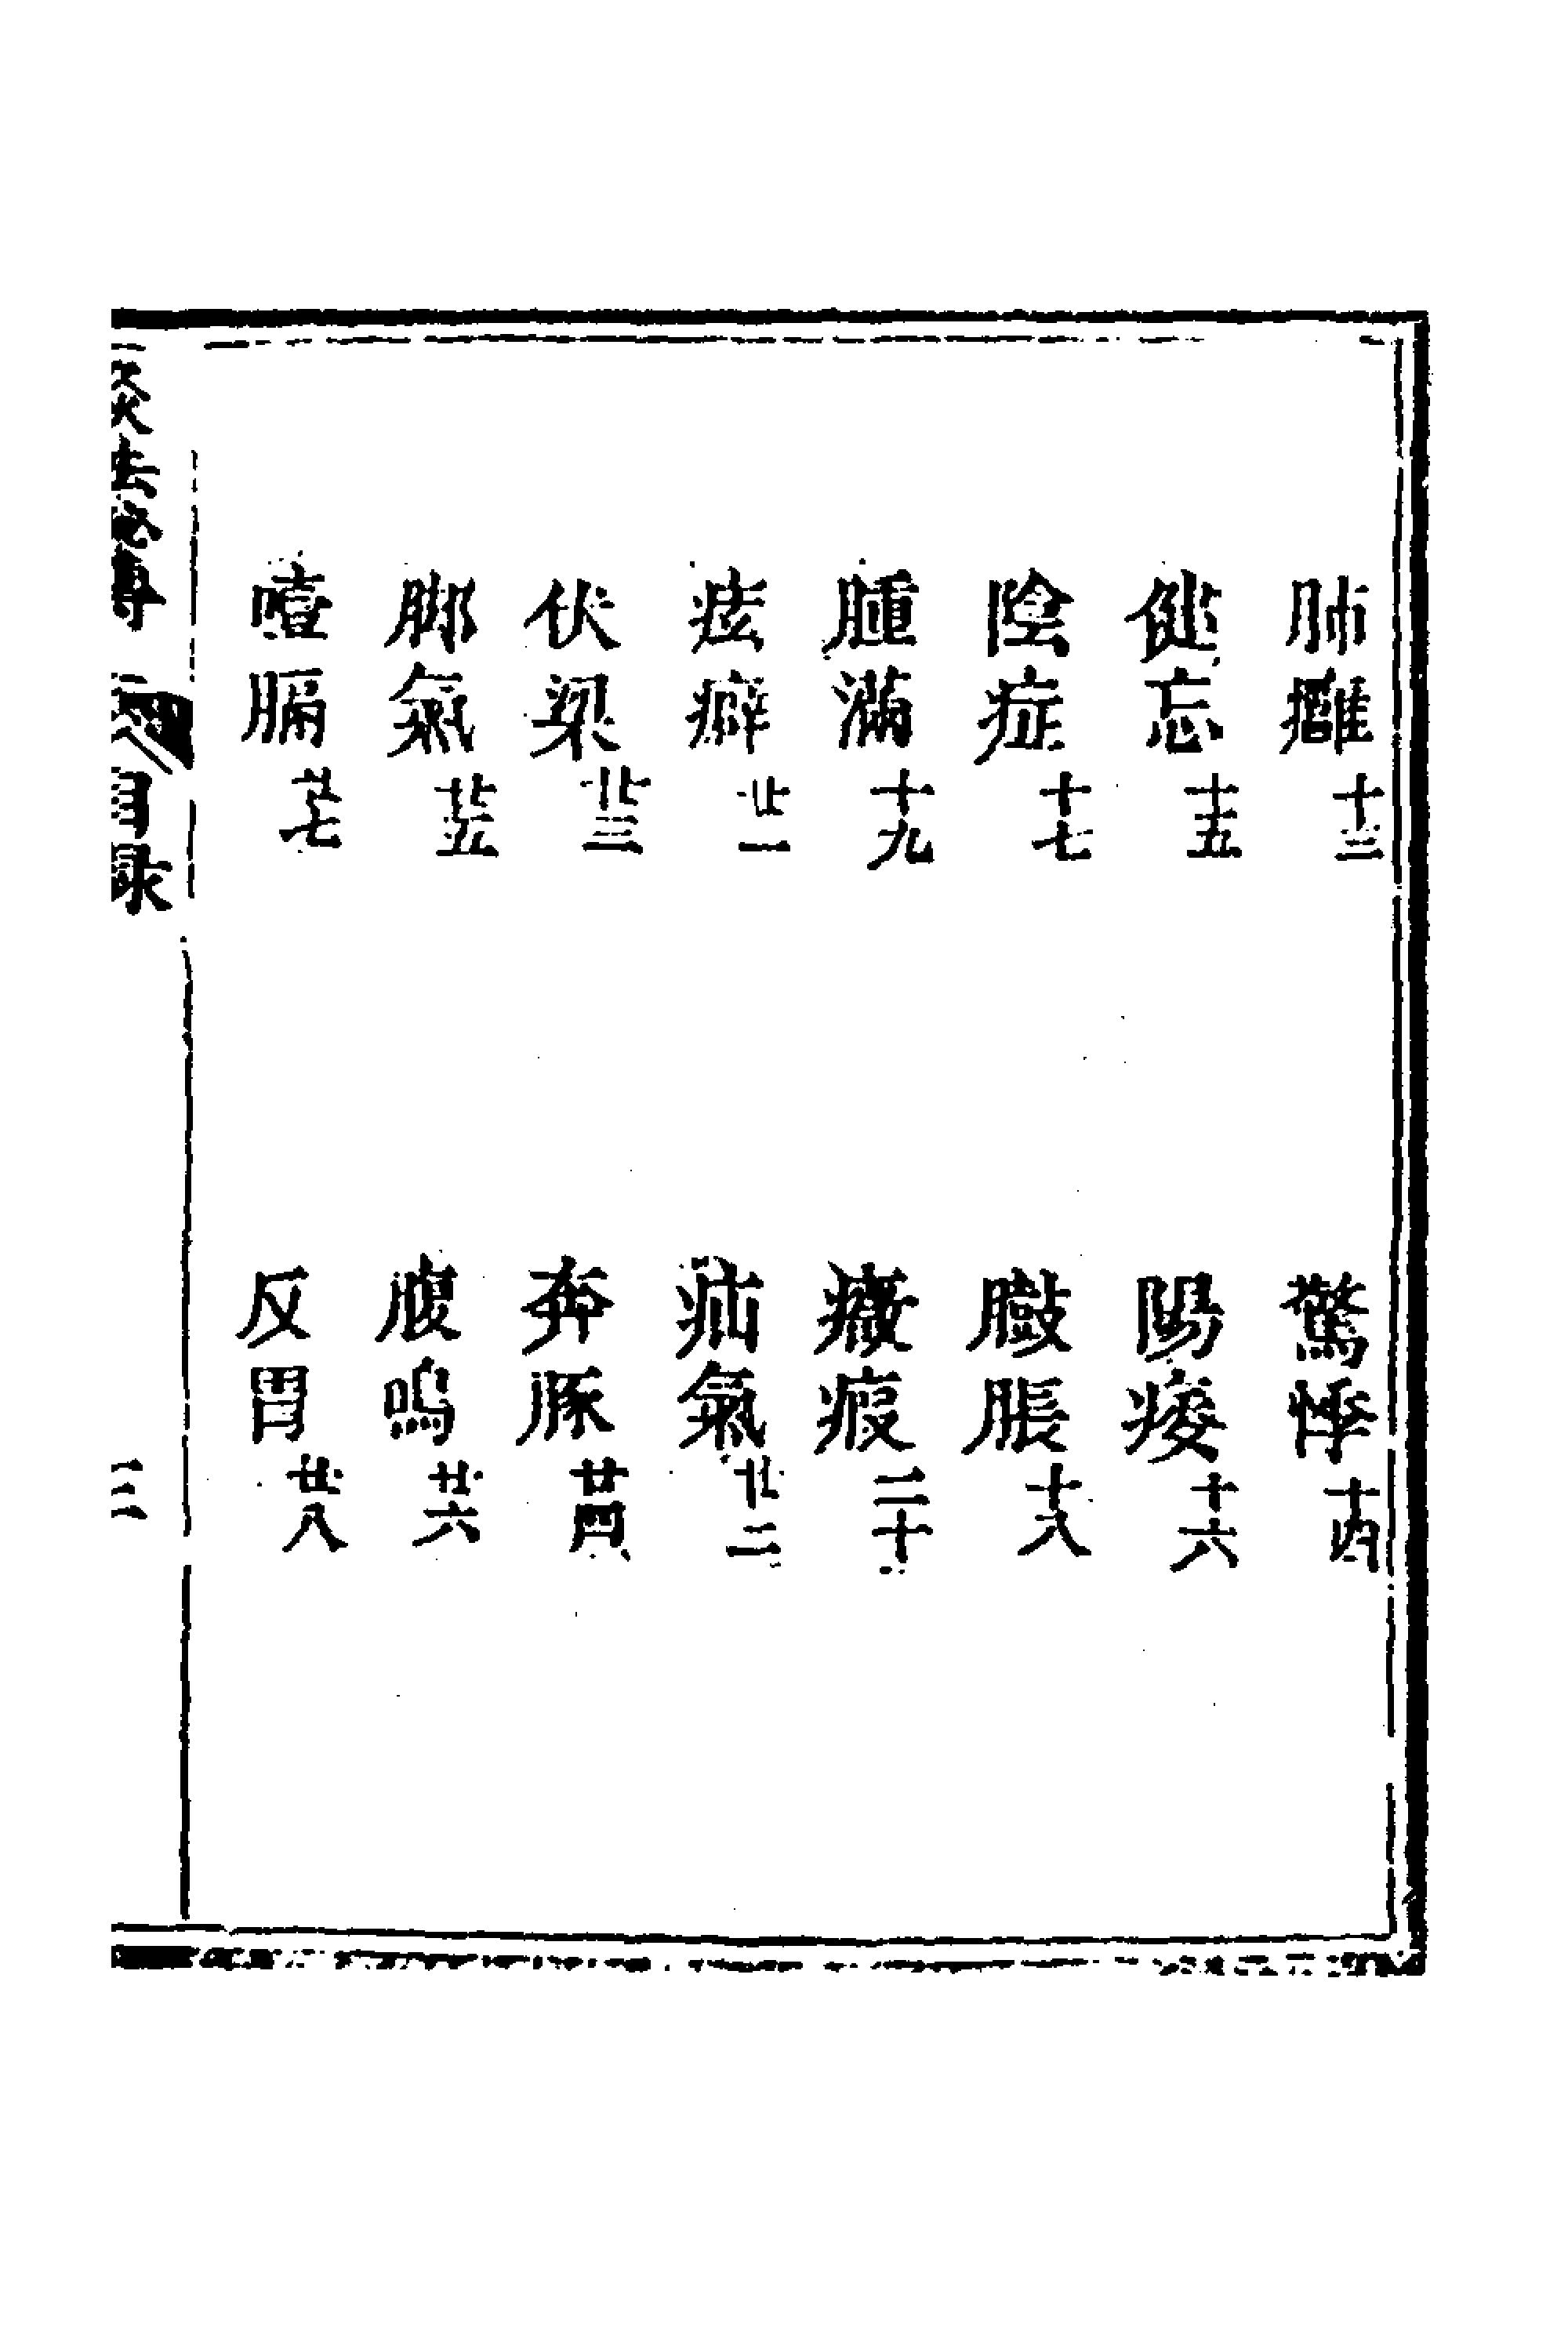 肺癰十三
驚悸十四
健忘十五
陽痿十六
陰症十七
臌脹十八
腫滿十九
癥瘕二十
痃癖廿一
疝氣廿二
伏梁廿三
奔豚廿四
脚氣廿五
腹鳴廿六
噎膈廿七
反胃廿八
目錄
三